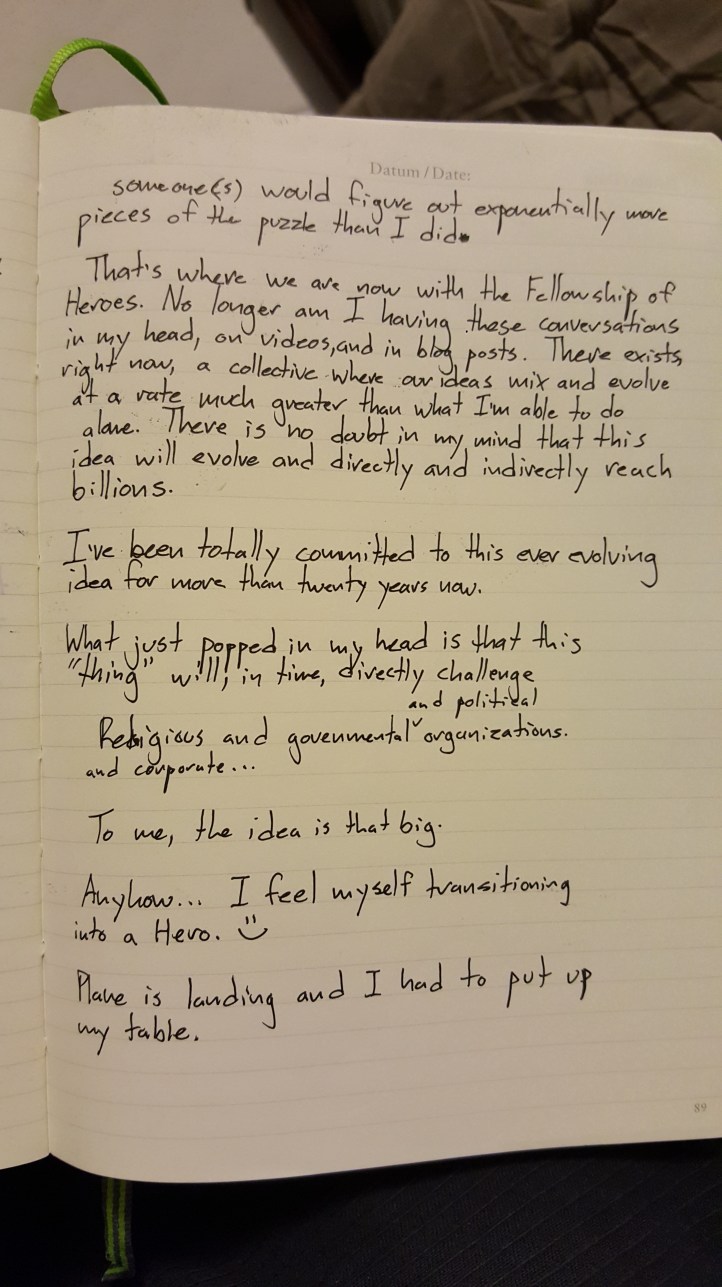 Datum / Date:
someone(s) would figure out exponentially more
pieces of the puzzle than I did.
That's where we are now with the Fellowship of
Heroes. No longer am I having these conversations
in my head, on videos, and in blog posts. There exists,
right now, a collective where our ideas mix and evolve
at a rate much greater than what I'm able to do
alone. There is no doubt in my mind that this
idea will evolve and directly and indirectly reach
billions.
I've been totally committed to this ever evolving
idea for more than twenty years now.
What just popped in my head is that this
"thing" will, in time, directly challenge
and political
Religious and govenmental ˇ organizations.
and corporate...
To me, the idea is that big.
Anyhow... I feel myself transitioning
into a Hero. :)
Plane is landing and I had to put up
my table.
89